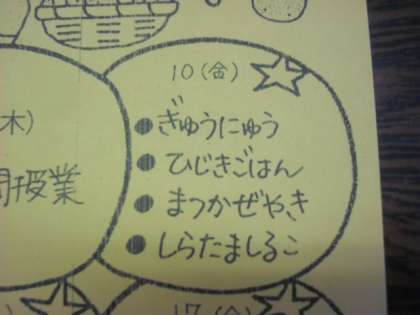 10(金)
ぎゅうにゅう
ひじきごはん
まつかぜやき
しらたましるこ
木)
授業
17(金)